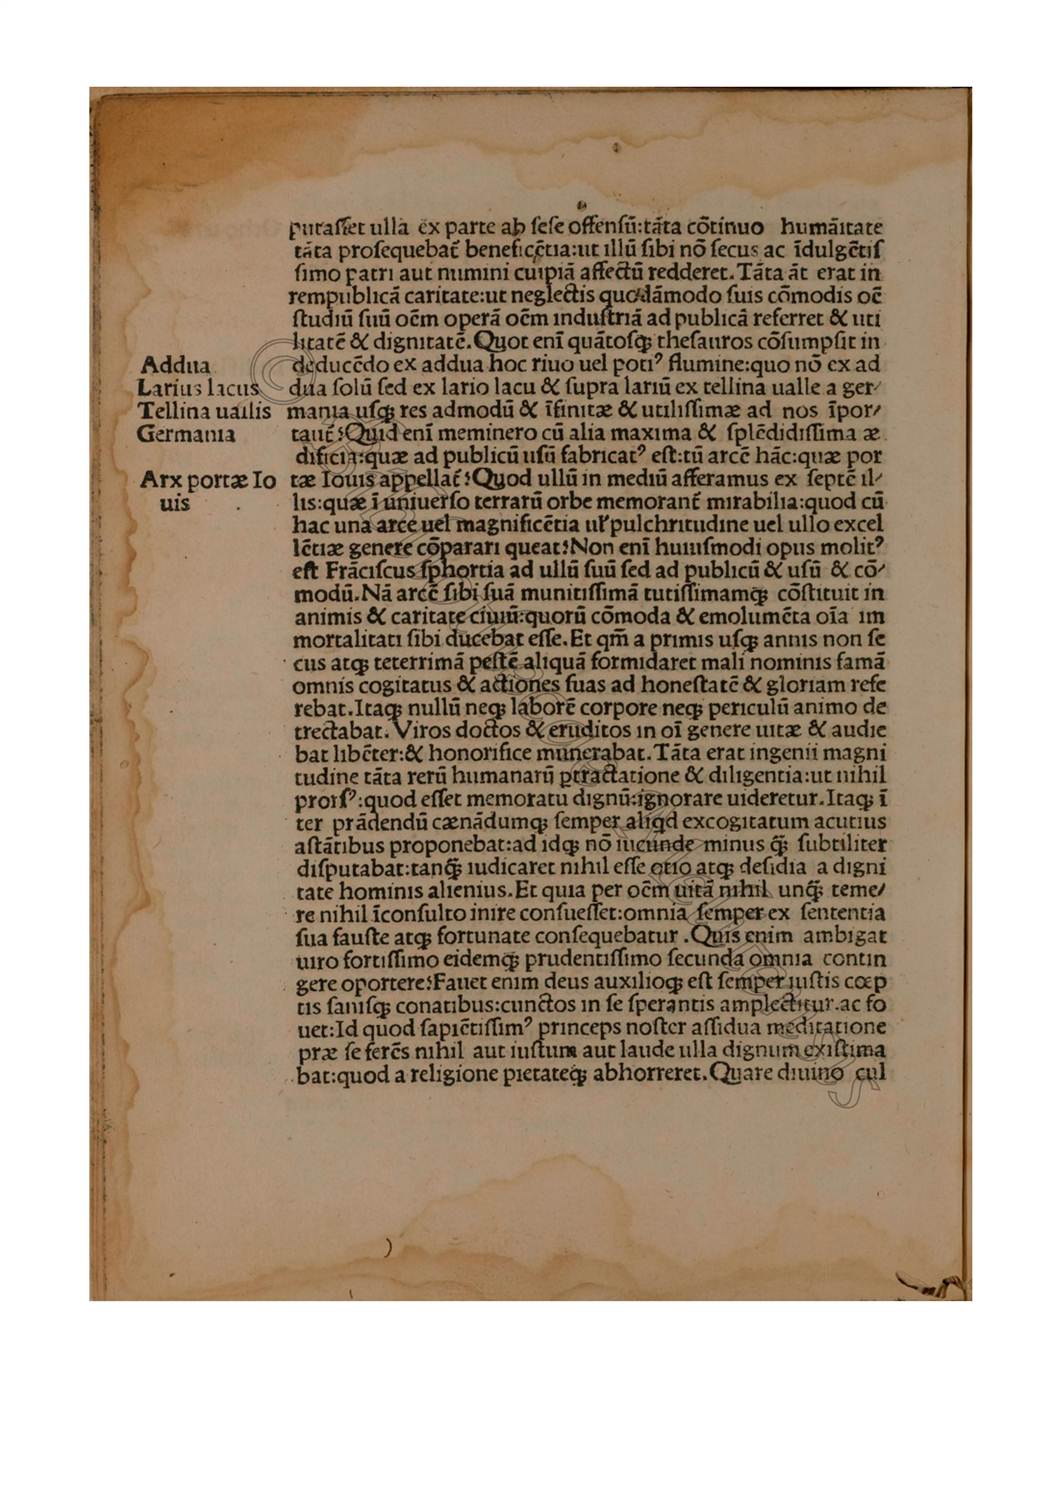 putaſſet ulla ex parte ab ſeſe offenſū:tāta cōtinuo humāitate
tāta proſequebat̄ beneficētia:ut illū ſibi nō ſecus ac īdulgētiſ
ſimo patri aut numini cuipiā affectū redderet.Tāta āt erat in
rempublicā caritate:ut neglectis quodāmodo ſuis cōmodis oē
ſtudiū ſuū oēm operā oēm induſtriā ad publicā referret & uti
litatē & dignitatē.Quot enī quātoſqꝫ theſauros cōſumpſit in
Addua
deducēdo ex addua hoc riuo uel potiꝰ flumine:quo nō ex ad
Larius lacus
dua ſolū ſed ex lario lacu & ſupra lariū ex tellina ualle a ger⸗
Tellina uallis
mania uſqꝫ res admodū & īfinitæ & utiliſſimæ ad nos īpor⸗
Germania
taut̄?Quid enī meminero cū alia maxima & ſplēdidiſſima æ
dificia:quæ ad publicū uſū fabricatꝰ eſt:tū arcē hāc:quæ por
Arx portæ Io
tæ Iouis appellat̄?Quod ullū in mediū afferamus ex ſeptē il⸗
uis
lis:quæ ī uniuerſo terrarū orbe memorant̄ mirabilia:quod cū
hac una arce uel magnificētia ul̓ pulchritudine uel ullo excel
lētiæ genere cōparari queat?Non enī huiuſmodi opus molitꝰ
eſt Frāciſcus ſphortia ad ullū ſuū ſed ad publicū & uſū & cō⸗
modū.Nā arcē ſibi ſuā munitiſſimā tutiſſimamqꝫ cōſtituit in
animis & caritate ciuiū:quorū cōmoda & emolumēta oīa im
mortalitati ſibi ducebat eſſe.Et qm̄ a primis uſqꝫ annis non ſe
cus atqꝫ teterrimā peſtē aliquā formidaret mali nominis famā
omnis cogitatus & actiones ſuas ad honeſtatē & gloriam refe
rebat.Itaqꝫ nullū neqꝫ laborē corpore neqꝫ periculū animo de
trectabat. Viros doctos & eruditos in oī genere uitæ & audie
bat libēter:& honorifice munerabat.Tāta erat ingenii magni
tudine tāta rerū humanarū ꝑtractatione & diligentia:ut nihil
prorſꝰ:quod eſſet memoratu dignū:ignorare uideretur.Itaqꝫ ī
ter prādendū cænādumqꝫ ſemper aliqd excogitatum acutius
aſtātibus proponebat:ad idqꝫ nō iucunde minus q̄ꝫ ſubtiliter
diſputabat:tanq̄ꝫ iudicaret nihil eſſe otio atqꝫ deſidia a digni
tate hominis alienius.Et quia per oēm uitā nihil unq̄ꝫ teme⸗
re nihil īconſulto inire conſueſſet:omnia ſemper ex ſententia
ſua fauſte atqꝫ fortunate conſequebatur .Quis enim ambigat
uiro fortiſſimo eidemqꝫ prudentiſſimo ſecunda omnia contin
gere oportere?Fauet enim deus auxilioqꝫ eſt ſemper iuſtis cœp
tis ſaniſqꝫ conatibus:cunctos in ſe ſperantis amplectitur.ac fo
uet:Id quod ſapiētiſſimꝰ princeps noſter aſſidua meditatione
præ ſe ferēs nihil aut iuſtum aut laude ulla dignum exiſtima
bat:quod a religione pietateqꝫ abhorreret.Quare diuino cul